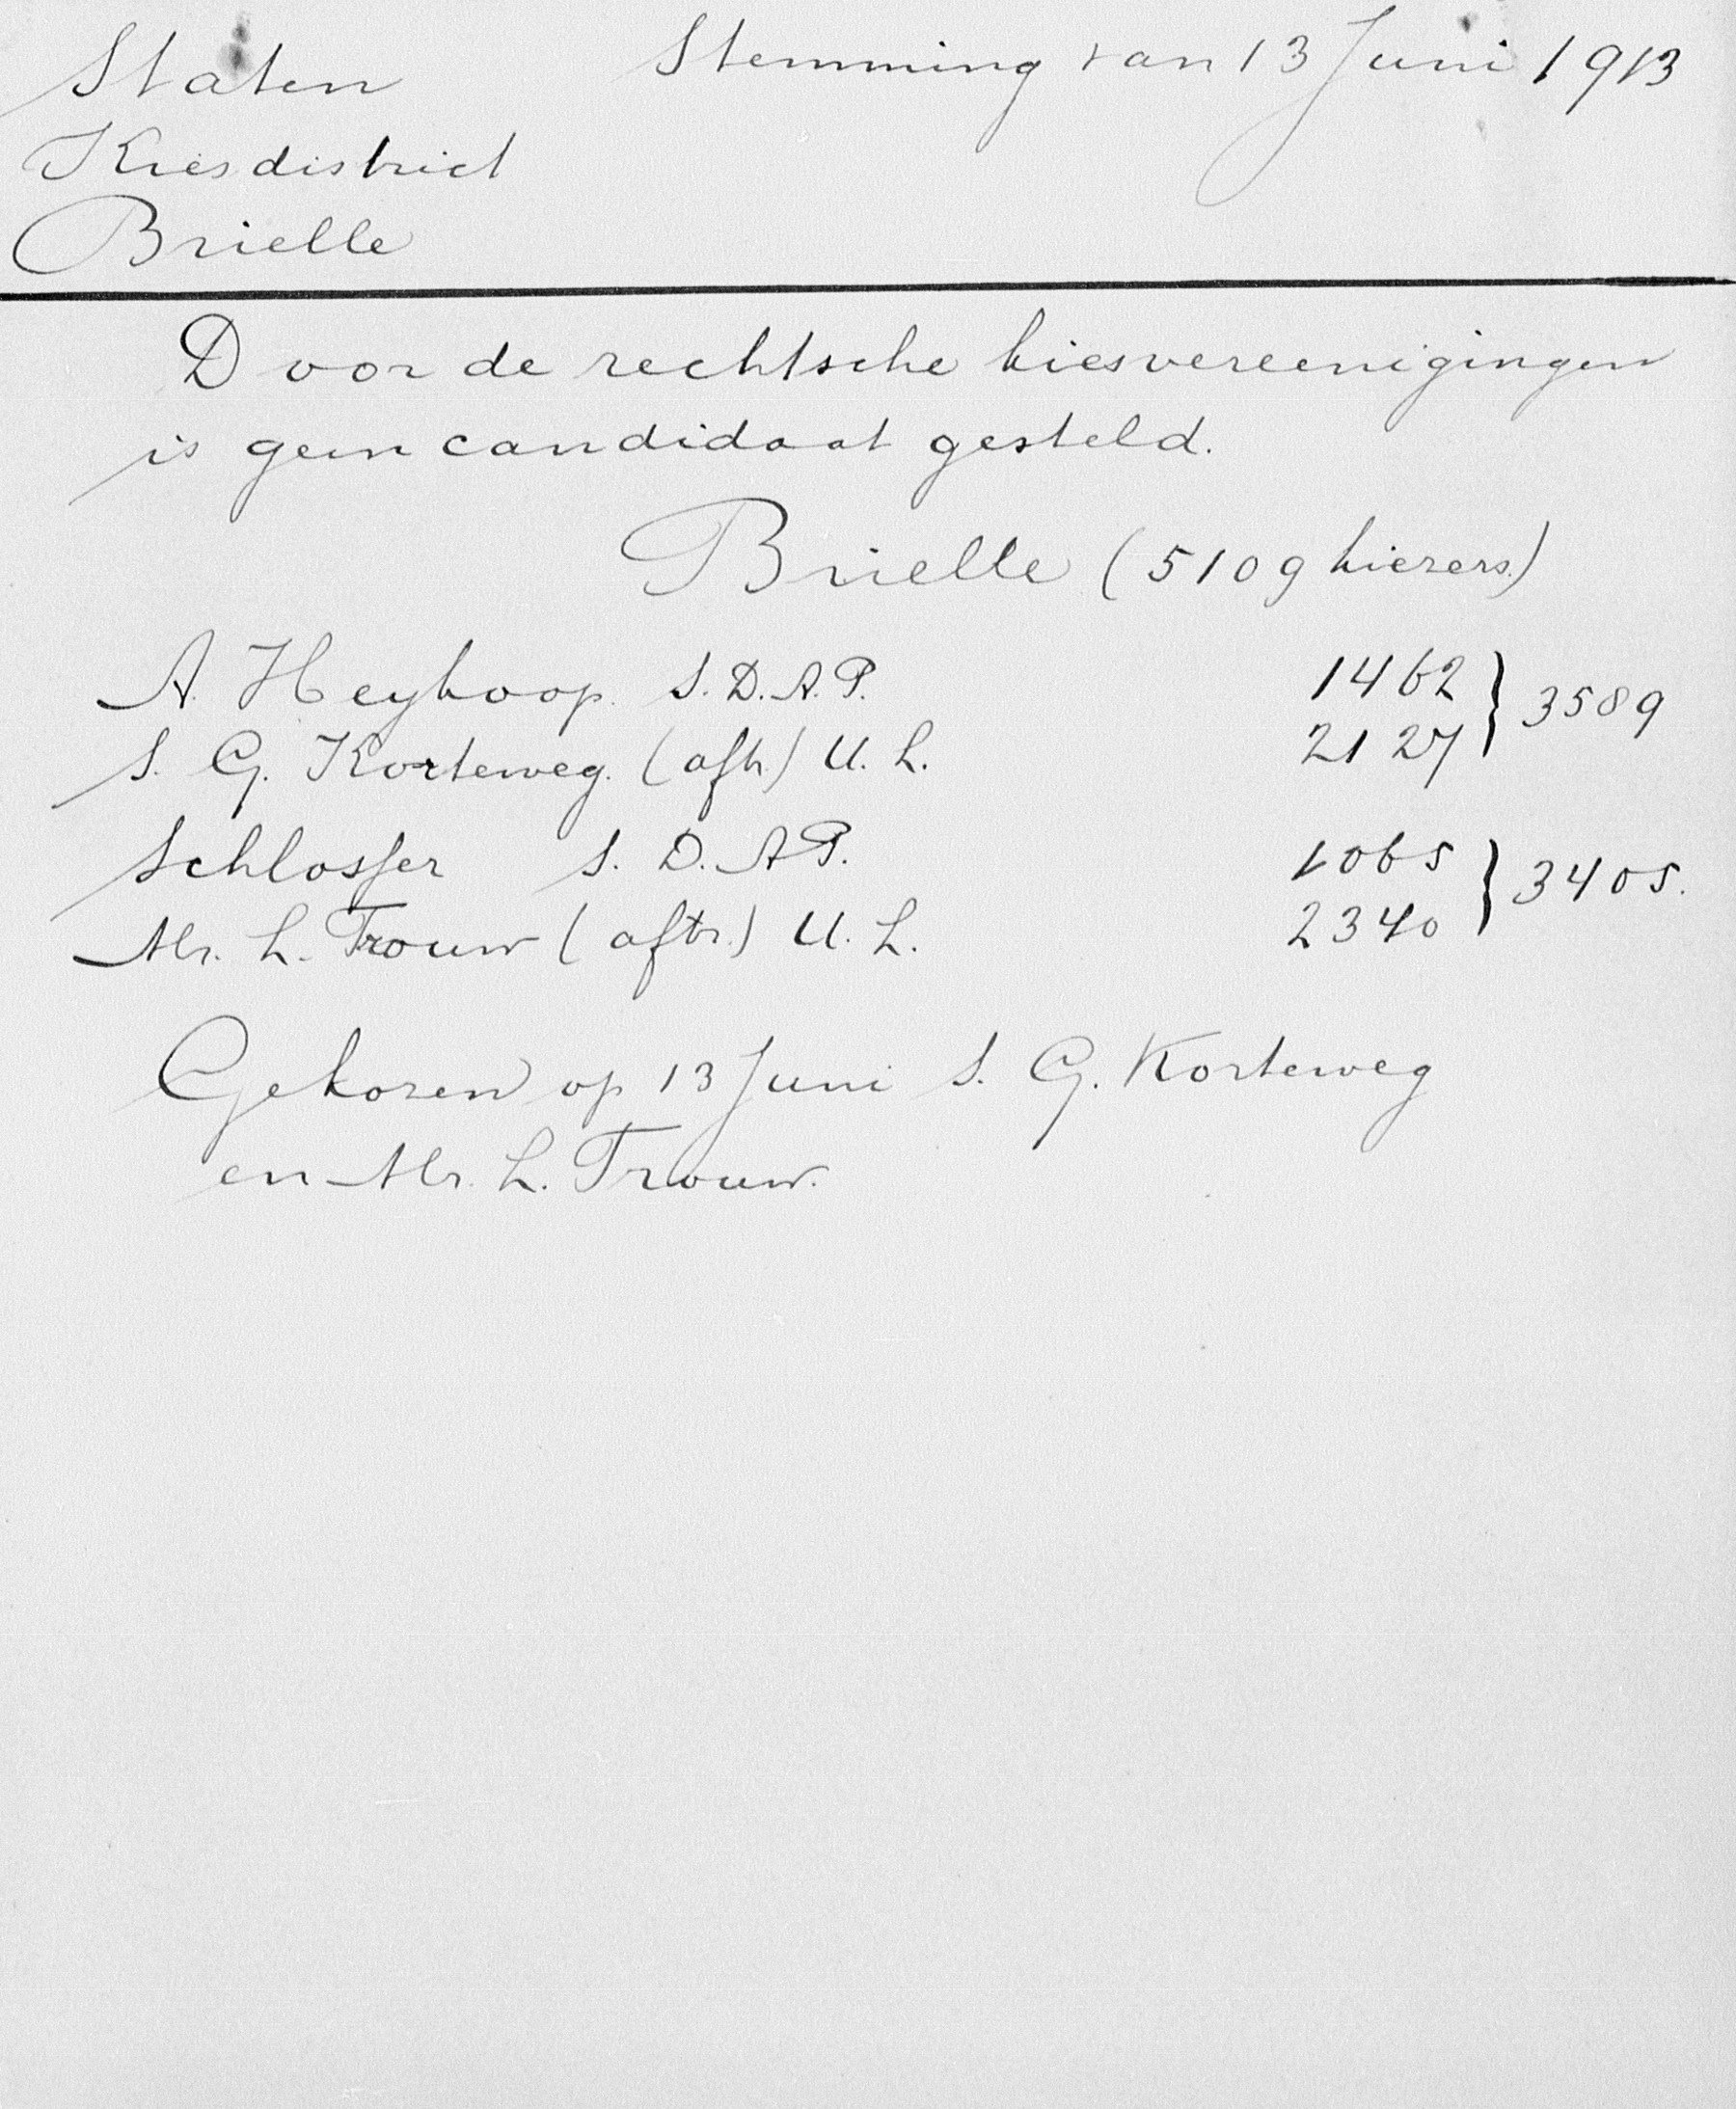 Staten Stemming van 13 Juni 1913
Kiesdistrict
Brielle
Door de rechtsche kiesvereenigingen
is geen candidaat gesteld.
Brielle (5109 kiezers.)
A. Heykoop. S. D. A. P. 1462 } 3589
S. G. Korteweg. (aftr.) U. L. 2127
Schlosser S. D. A P. 1065 } 3405.
Mr. L. Trouw (aftr.) U. L. 2340
Gekozen op 13 Juni S. G. Korteweg
en Mr. L. Trouw.